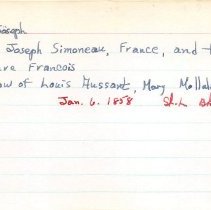 Joseph
Joseph Simoneau, France, and
Francois
of Louis Fussant, Mary
Jan. 6. 1858 St. L